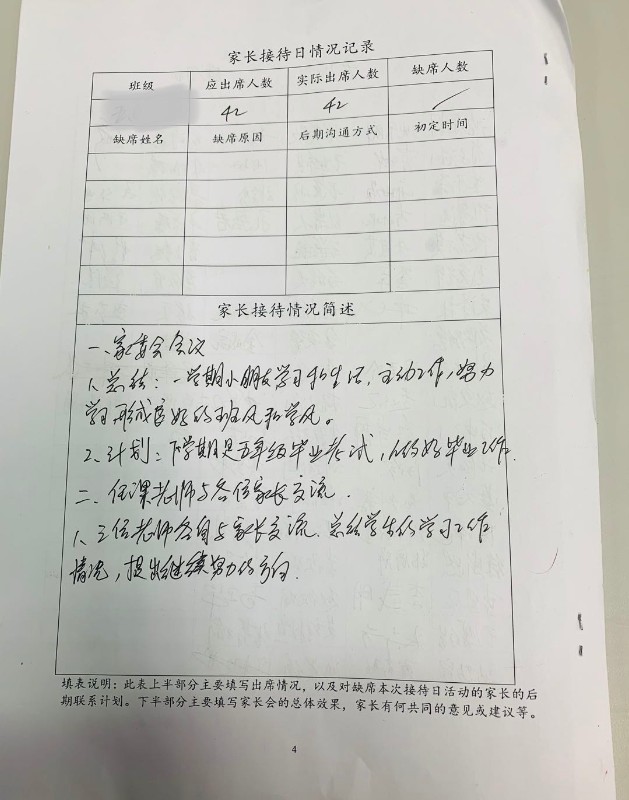 家长接待日情况记录
班级 应出席人数 实际出席人数 缺席人数
42 42 /
缺席姓名 缺席原因 后期沟通方式 初定时间
家长接待情况简述
一、家委会会议
1、总结：一学期小朋友学习和生活，主动工作，努力
学习，形成良好的班风和学风。
2、计划：下学期是五年级毕业考试，做好毕业工作.
二、任课老师与各位家长交流.
1、三位老师各自与家长交流. 总结学生的学习工作
情况，提出继续努力的方向.
填表说明：此表上半部分主要填写出席情况，以及对缺席本次接待日活动的家长的后
期联系计划。下半部分主要填写家长会的总体效果，家长有何共同的意见或建议等。
4